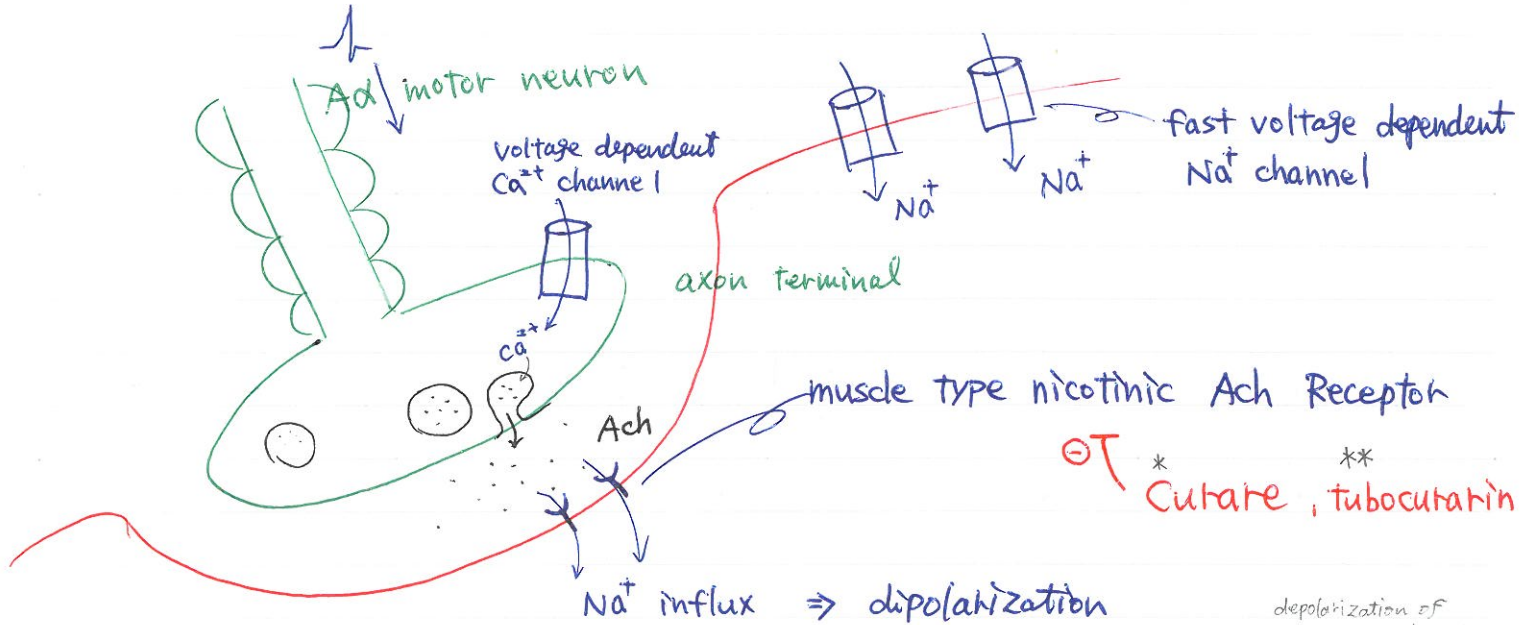 Aα motor neuron
voltage dependent
Ca²⁺ channel
fast voltage dependent
Na⁺ channel
Na⁺
Na⁺
axon terminal
Ca²⁺
Ach
muscle type nicotinic Ach Receptor
⊖ * **
Curare , tubocurarin
Na⁺ influx ⇒ dipolarization
depolarization of